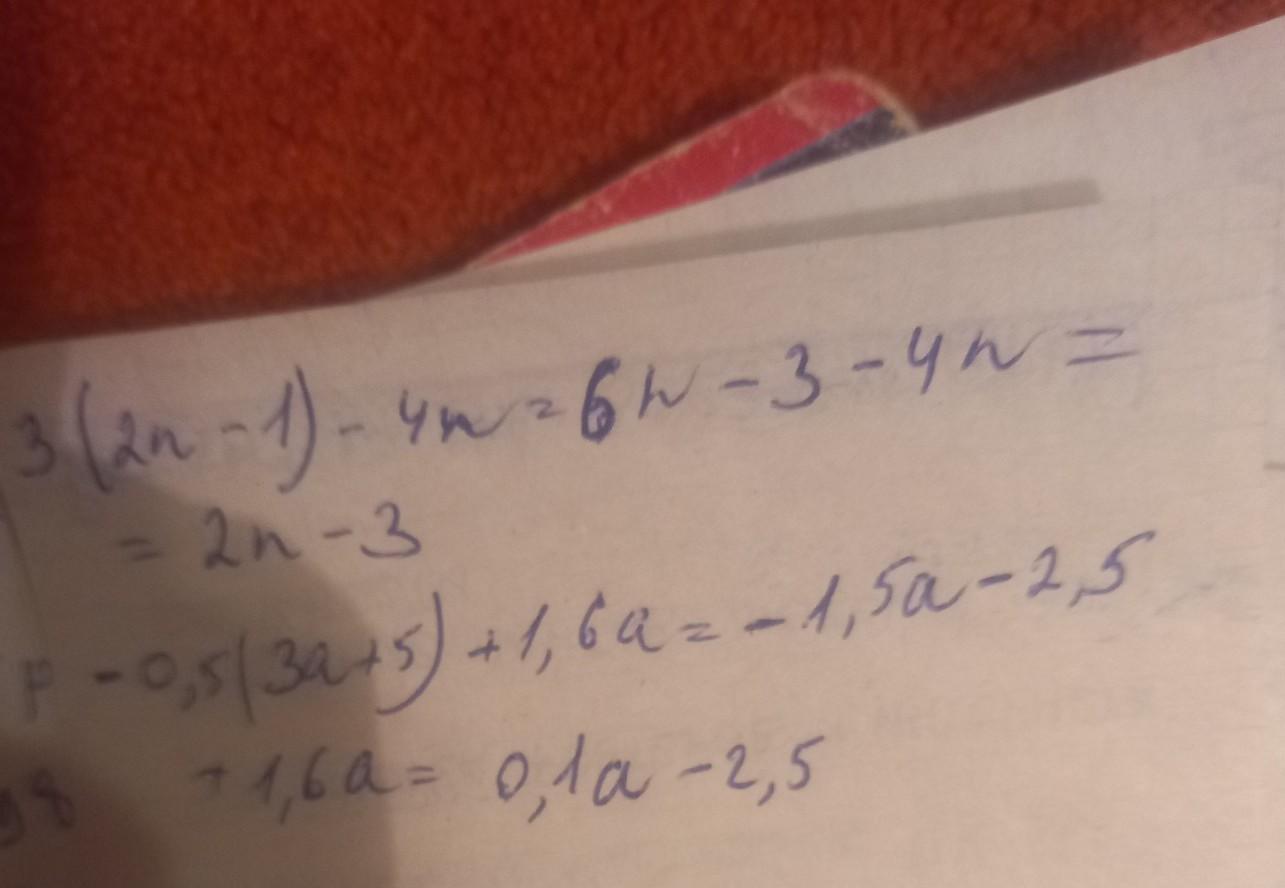 3(2n-1)-4n=6n-3-4n=
=2n-3
-0,5(3a+5)+1,6a=-1,5a-2,5
+1,6a=0,1a-2,5